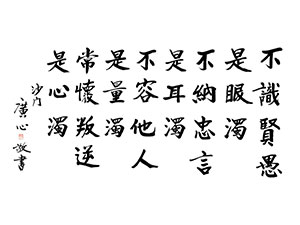 不識賢愚
是眼濁
不納忠言
是耳濁
不容他人
是量濁
常懷叛逆
是心濁
沙門
廣心敬書